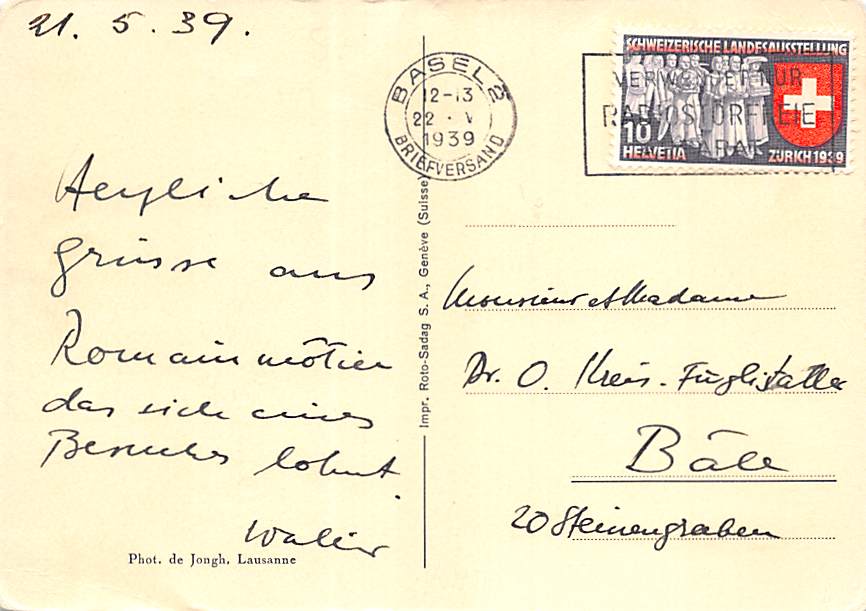 21. 5. 39.
BASEL 2
12-13
22 · V
1939
BRIEFVERSAND
VERWENDET NUR
RADIOSTÖRFREIE
APPARATE
SCHWEIZERISCHE LANDESAUSSTELLUNG
10
HELVETIA
ZÜRICH 1939
Herzliche
Grüsse aus
Romainmôtier
das sich eines
Besuches lohnt.
Walter
Phot. de Jongh, Lausanne
Impr. Roto-Sadag S. A., Genève (Suisse)
Monsieur et Madame
Dr. O. Kreis-Füglistaller
Bâle
20 Steinengraben